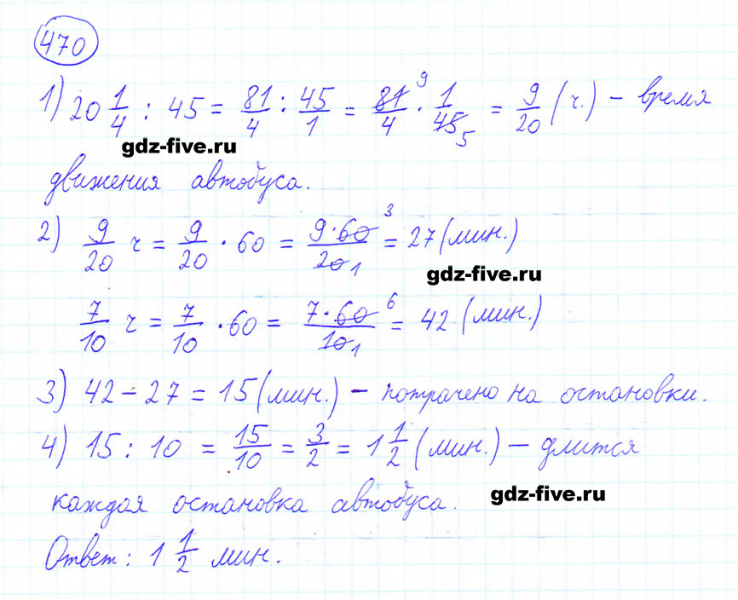 470
1) 20 1/4 : 45 = 81/4 : 45/1 = 81/4 9 · 1/45 5 = 9/20 (ч.) – время
gdz-five.ru
движения автобуса.
2) 9/20 ч = 9/20 · 60 = 9·60/20 3 1 = 27 (мин.)
gdz-five.ru
7/10 ч = 7/10 · 60 = 7·60/10 6 1 = 42 (мин.)
3) 42 – 27 = 15 (мин.) – потрачено на остановки.
4) 15 : 10 = 15/10 = 3/2 = 1 1/2 (мин.) – длится
каждая остановка автобуса.
gdz-five.ru
Ответ: 1 1/2 мин.